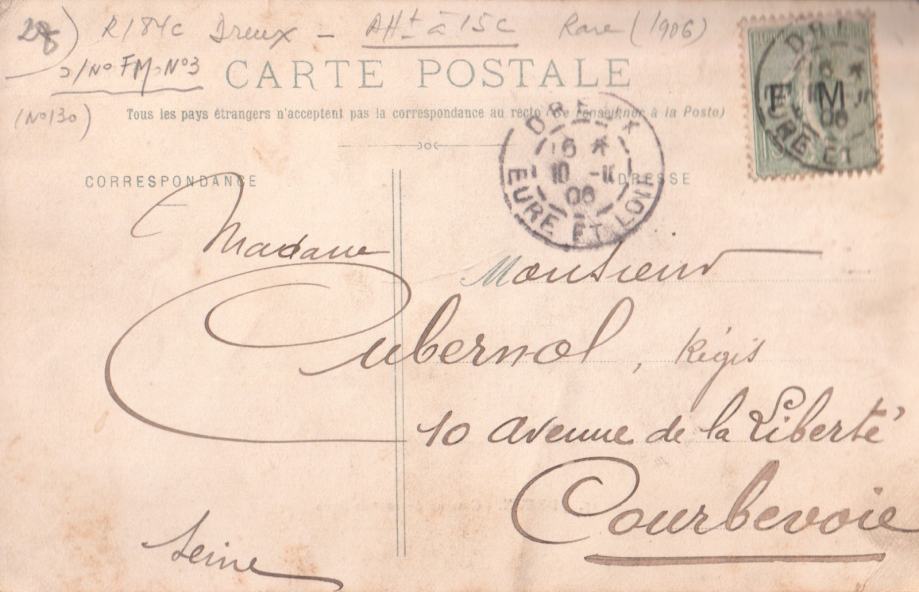 28) R184c Dreux - AHt à 15c Rare (1906)
s/No FM No3
CARTE POSTALE
(No 130)
Tous les pays étrangers n'acceptent pas la correspondance au recto (Se renseigner à la Poste)
CORRESPONDANCE
ADRESSE
F.M.
DREUX
6 *
10 -11
06
EURE ET LOIR
DREUX
6 *
10 -11
06
EURE ET
Madame
Monsieur
Cubernol, Régis
10 avenue de la Liberté
Courbevoie
Seine